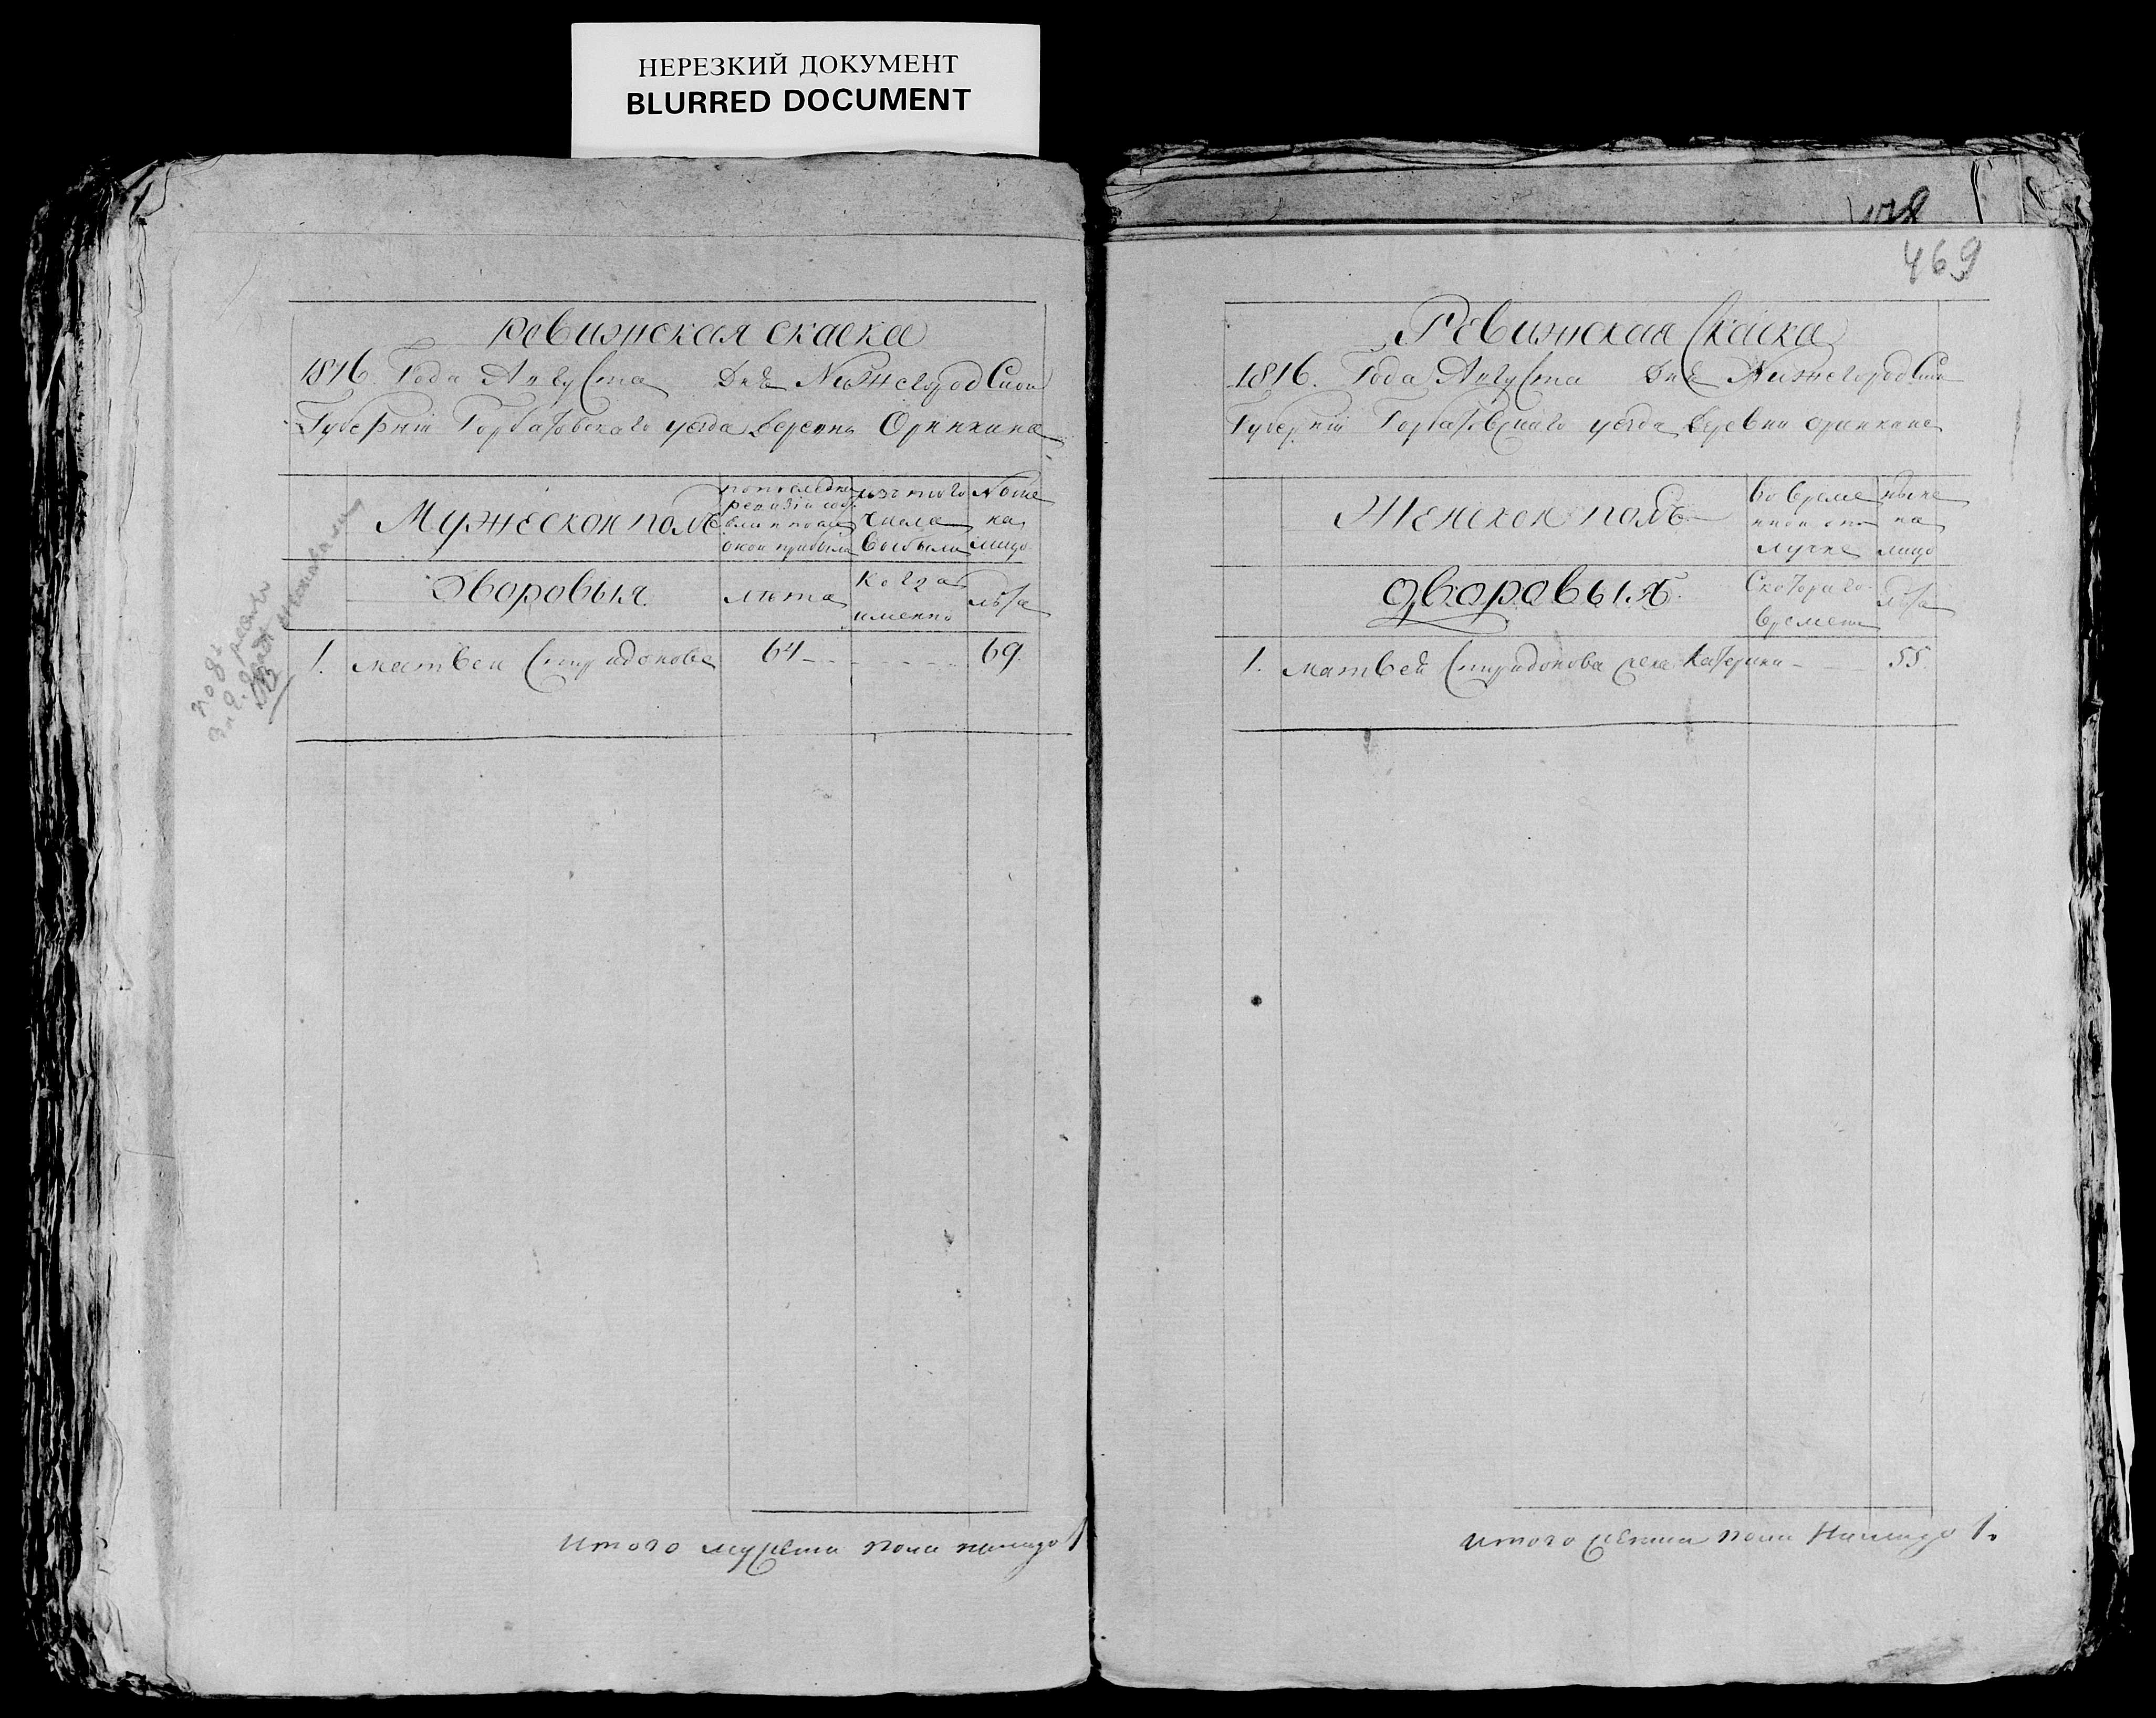 НЕРЕЗКИЙ ДОКУМЕНТ
BLURRED DOCUMENT
ревижская скаска
1816. Года Августа Дня Нижегородской
Губерніи Горбатовскаго уезда Деревни Оринкина
Мужескои полъ
изъ того числа выбыли
Ныне на лицо
Дворовыя
лета
Когда именно
лета
1. матвеи Спиридоновъ 64 69.
Итого мужеска пола налицо 1
478
469
Ревижская Скаска
1816. Года Августа Дня Нижегородской
Губерніи Горбатовскаго уезда Деревни оринкина
Женскои полъ
во време
ннои от
лучке
ныне
на
лицо
дворовыя.
Скотораго
времени
лета
1. матвея Спиридонова жена Катерина 55.
Итого женска пола Налицо 1.